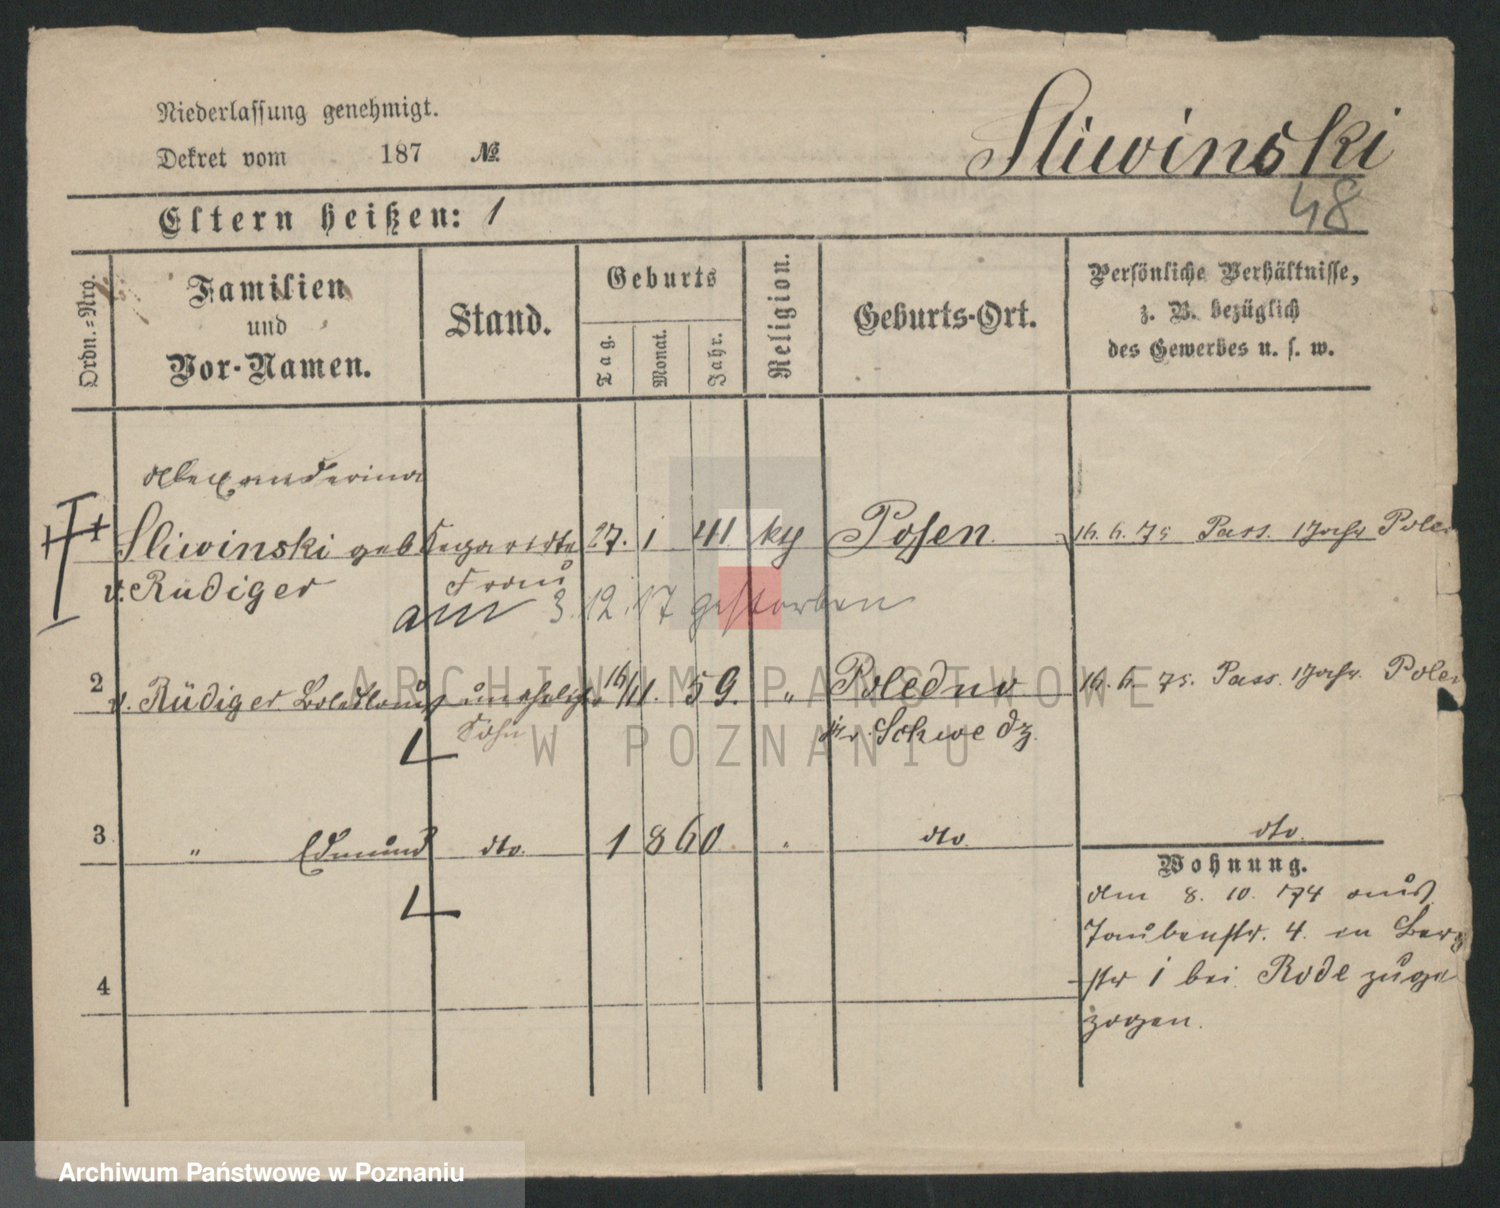 Niederlassung genehmigt.
Dekret vom 187 №
Sliwinski
48
Eltern heißen: 1
Ordn.-Nro.
Familien
und
Vor-Namen.
Stand.
Geburts
Tag.
Monat.
Jahr.
Religion.
Geburts-Ort.
Persönliche Verhältnisse,
z. B. bezüglich
des Gewerbes u. s. w.
Alexanderina
Sliwinski geb. 27. 1 41 Posen 16. 6. 75 Pass. 1 Jahr Polen
v. Rüdiger Frau
am 3. 12. 17 gestorben
2 v. Rüdiger Boleslaus unehelicher 16/11. 59. " Poledno 16. 6. 75. Pass. 1 Jahr. Polen
Sohn Kr. Schwedz.
3 " Edmund dto. 1 8 60 " dto. dto.
Wohnung.
den 8. 10. 174 aus
Taubenstr. 4. in Berg
str 1 bei Rode zuge
zogen.
4
ARCHIWUM PAŃSTWOWE
W POZNANIU
Archiwum Państwowe w Poznaniu